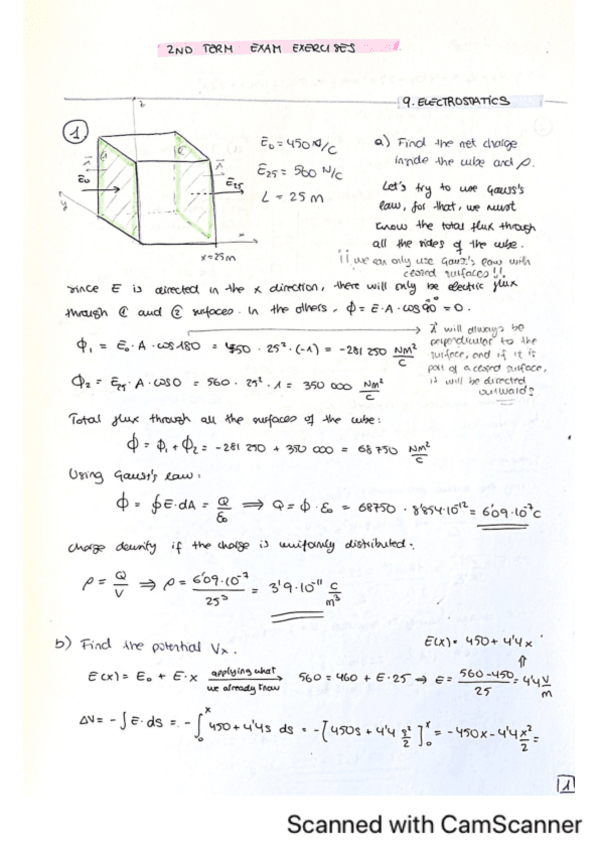 2ND TERM EXAM EXERCISES
9. ELECTROSTATICS
1
z
y
x
E₀
E₂₅
x=25m
E₀ = 450 N/C
E₂₅ = 560 N/C
L = 25 m
a) Find the net charge
inside the cube and ρ.
Let's try to use Gauss's
law, for that, we must
know the total flux through
all the sides of the cube.
¡¡ we can only use Gauss's law with
closed surfaces!!
Since E is directed in the x direction, there will only be electric flux
through ① and ② surfaces. In the others, Φ = E·A·cos90° = 0.
Φ₁ = E₀·A·cos180 = 450·25²·(-1) = -281 250 NM²/C
A will always be
perpendicular to the
surface, and if it is
part of a closed surface,
it will be directed
outwards
Φ₂ = E₂₅·A·cos0 = 560·25²·1 = 350 000 NM²/C
Total flux through all the surfaces of the cube:
Φ = Φ₁ + Φ₂ = -281 250 + 350 000 = 68 750 NM²/C
Using Gauss's law:
Φ = ∮E·dA = Q/ε₀ ⇒ Q = Φ·ε₀ = 68750·8'854·10⁻¹² = 6'09·10⁻⁷C
Charge density if the charge is uniformly distributed:
ρ = Q/V ⇒ ρ = 6'09·10⁻⁷/25³ = 3'9·10⁻¹¹ C/m³
b) Find the potential Vₓ.
E(x) = 450 + 4'4x
E(x) = E₀ + E·x applying what we already know → 560 = 460 + E·25 → E = 560-450/25 = 4'4 V/m
ΔV = -∫E·ds = -∫₀ˣ 450+4'4s ds = -[450s + 4'4 s²/2]₀ˣ = -450x - 4'4 x²/2 =
1
Scanned with CamScanner